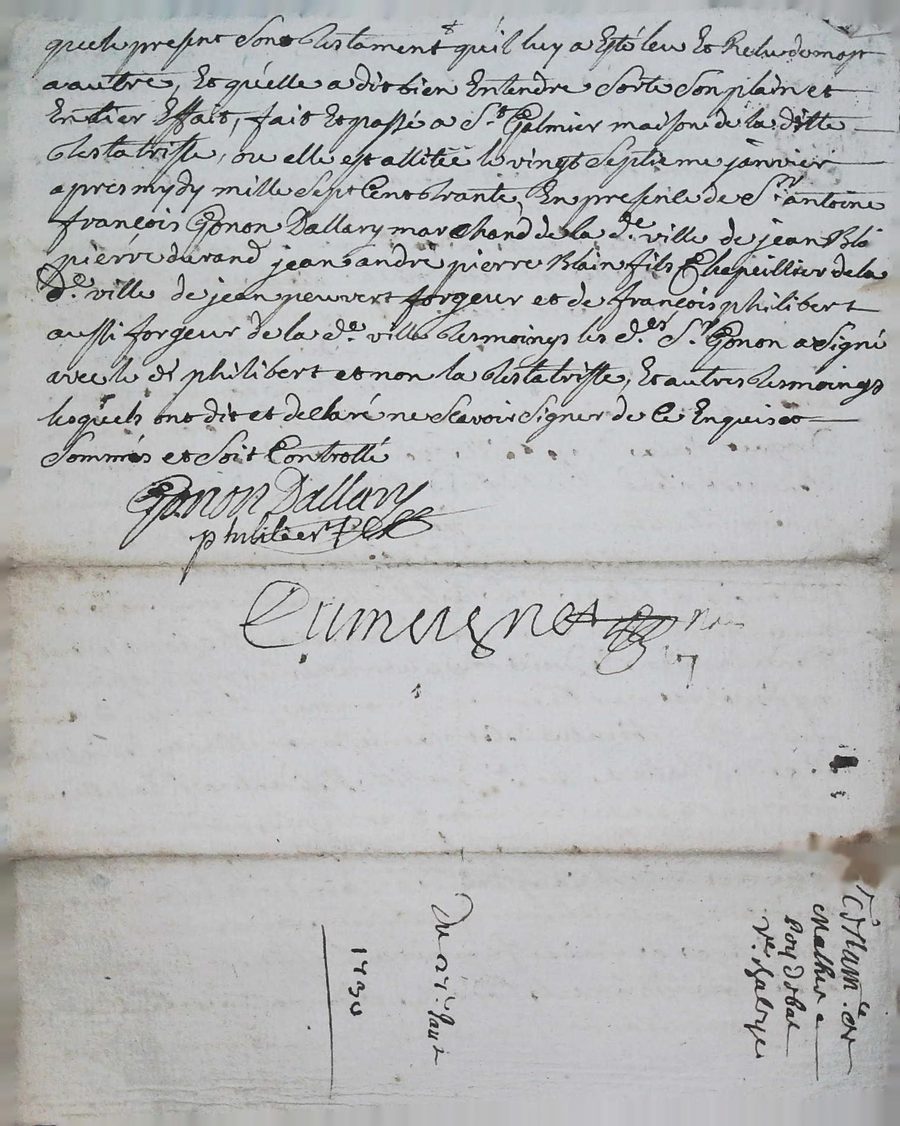 que le present Son testament qu'il luy a Esté leu Et Relu de mot
a autre, Et qu'elle a dit bien Entendre Sorte Son plain et
Entier Effait, fait Et passé a St. Galmier maison de la ditte
testatrisse, ou elle est allitée le vingt Septieme janvier
apres mydy mille Sept Cent trante En presence de Sr. antoine
françois Gonon Dallary marchand de la de. ville de jean Bla
pierre durand jean andré pierre Blain fils Chapeillier de la
de. ville de jean peuvert forgeur et de françois philibert
aussi forgeur de la de. ville tesmoings les des. Sr. Gonon a Signé
avec le dt philibert et non la testatrisse, Et autres tesmoings
lesquels ont dit et declaré ne Scavoir Signer de Ce Enquis et
Sommés et Soit Controllé
Gonon Dallary
philibert
Du 27e. Janv
1730